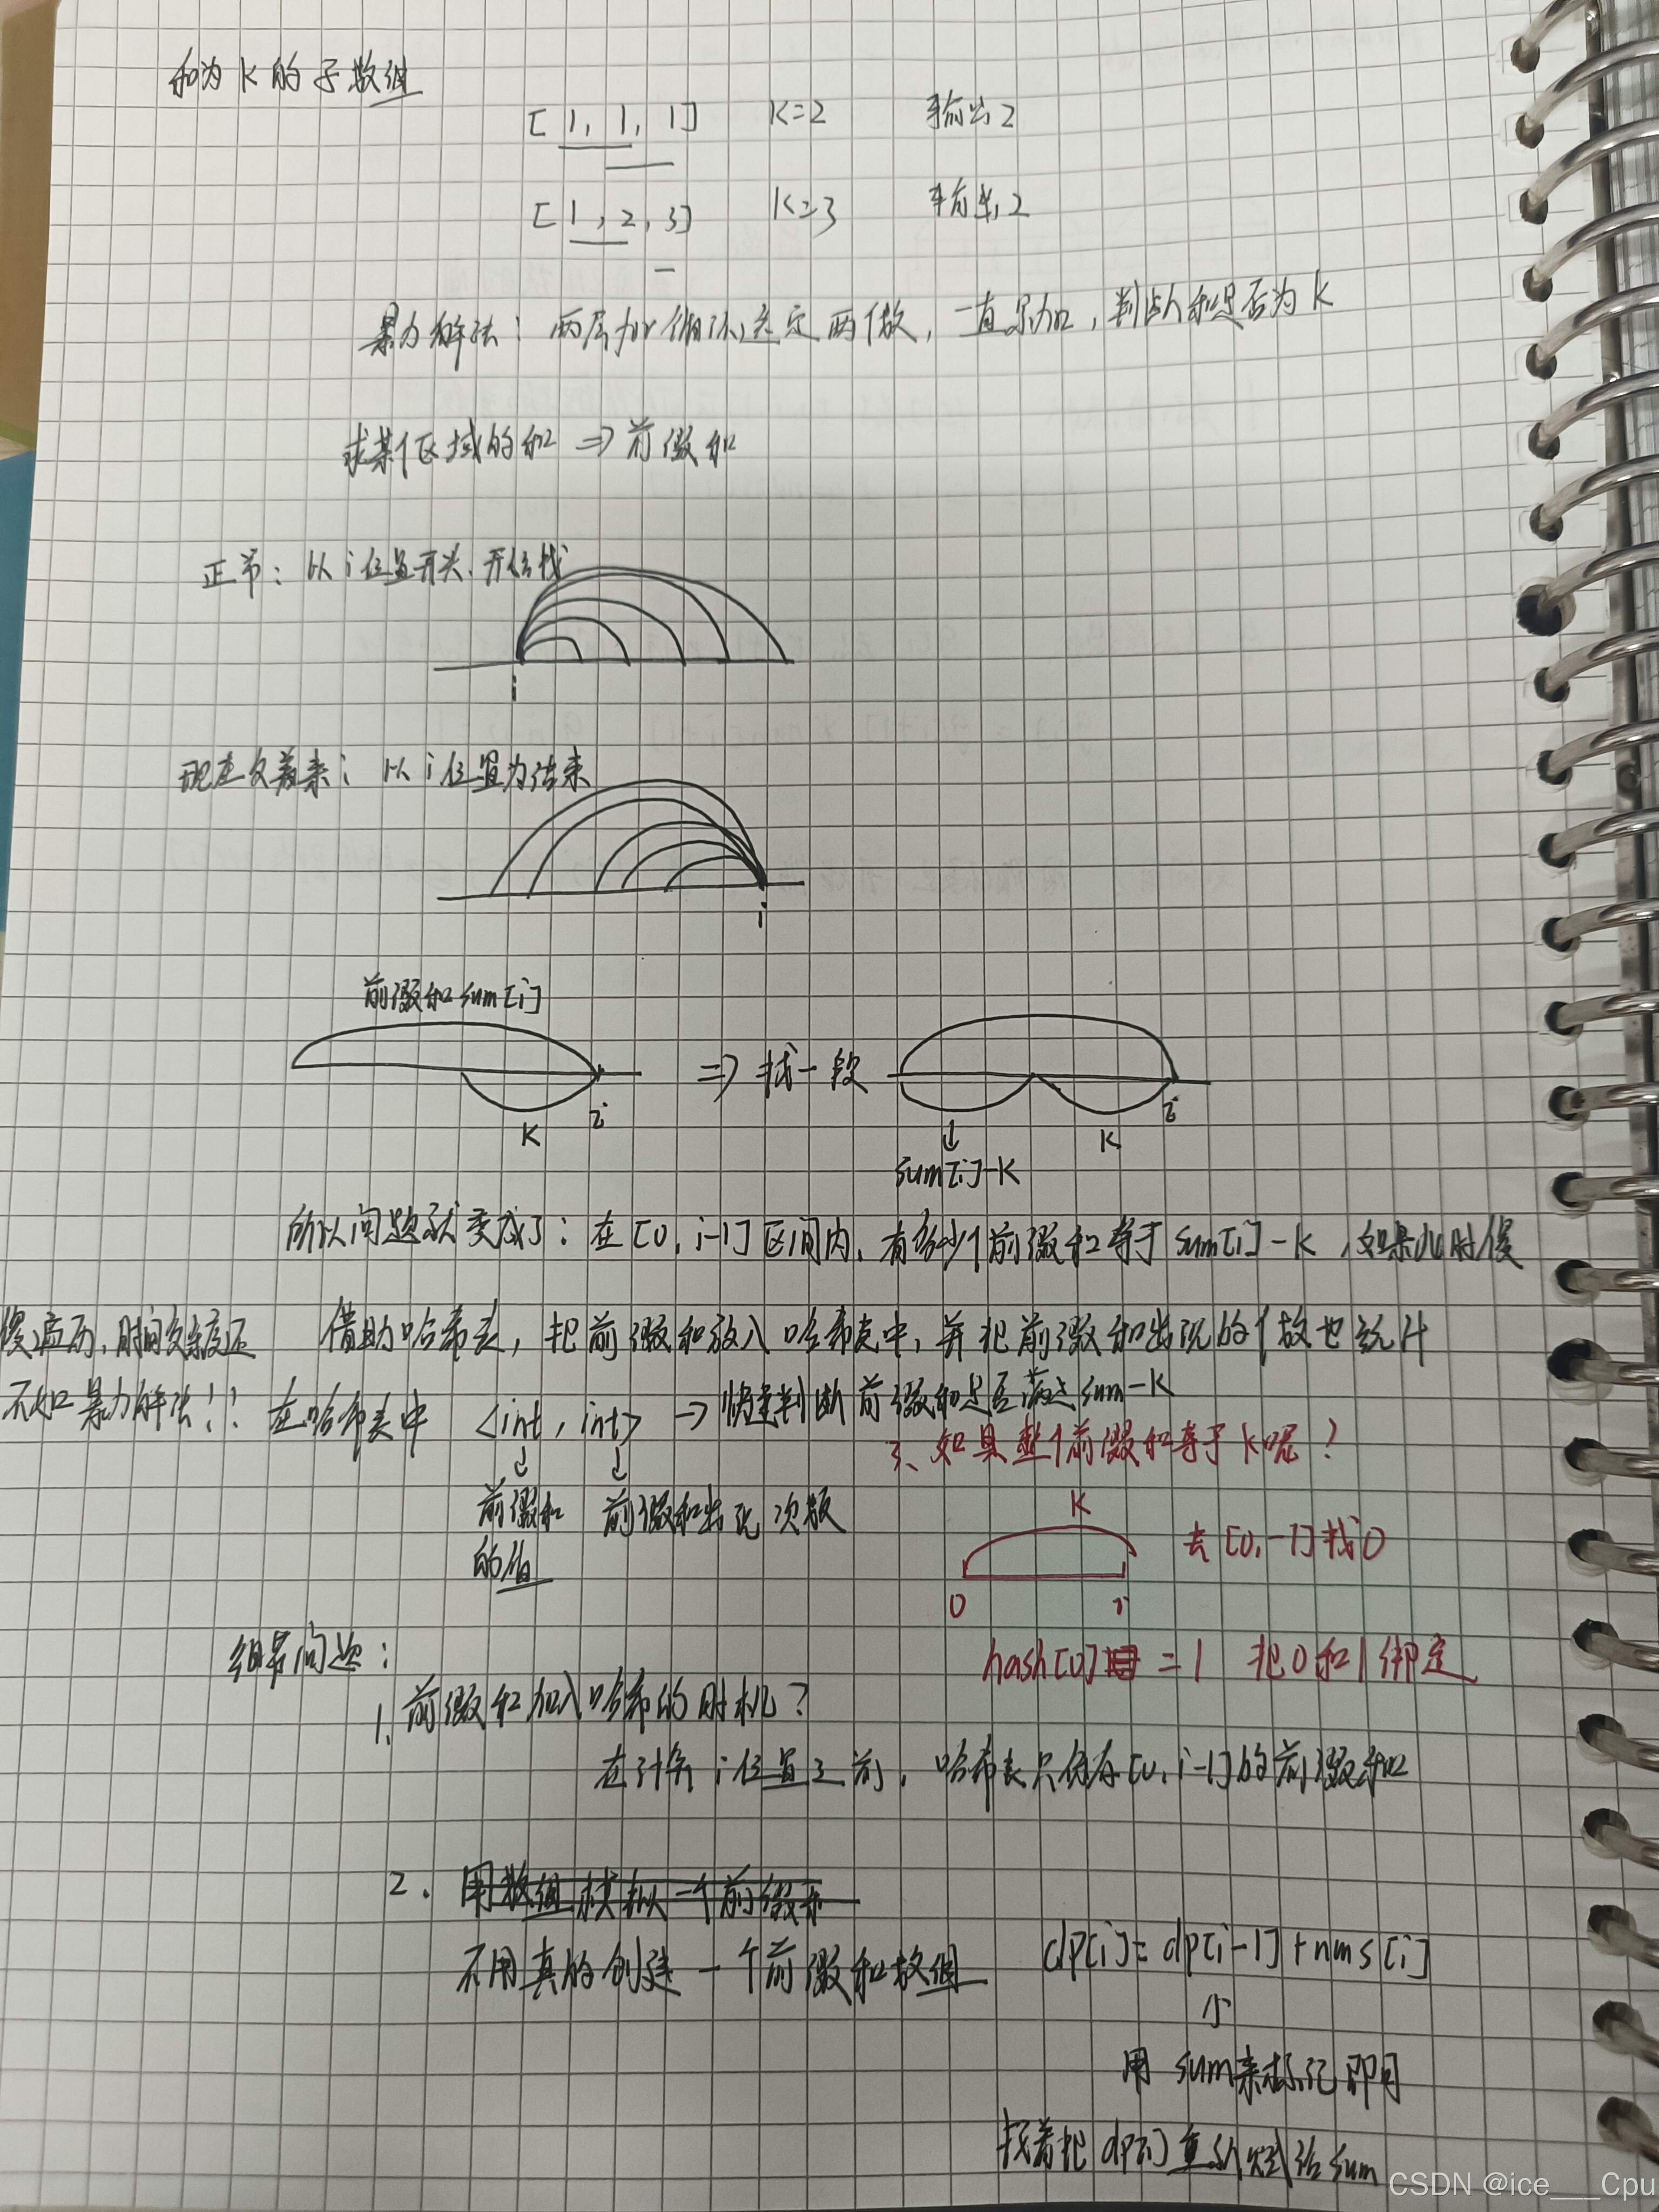 和为k的子数组
[1, 1, 1] k=2 输出2
[1, 2, 3] k=3 输出2
暴力解法: 两层for循环选定两个数, 一直累加, 判断和是否为k
求某个区域的和 => 前缀和
正常: 以i位置开头, 开始找
i
现在反着来: 以i位置为结束
i
前缀和sum[i]
=> 找一段
k i
k i
sum[i]-k
所以问题就变成了: 在[0, i-1]区间内, 有多少个前缀和等于sum[i]-k, 如果此时傻
傻遍历, 时间复杂度还
不如暴力解法!!
借助哈希表, 把前缀和放入哈希表中, 并把前缀和出现的个数也统计
在哈希表中 <int, int> → 快速判断前缀和是否满足sum-k
前缀和
的值
前缀和出现次数
3、如果整个前缀和等于k呢?
k
去[0,-1]找0
0 i
hash[0] =1 把0和1绑定
细节问题:
1、前缀和加入哈希的时机?
在计算i位置之前, 哈希表只保存[0, i-1]的前缀和
2. 用数组模拟一个前缀和
不用真的创建一个前缀和数组
dp[i]=dp[i-1]+nms[i]
用sum来标记即可
找着把dp[i]重新赋给sum
CSDN @ice___Cpu